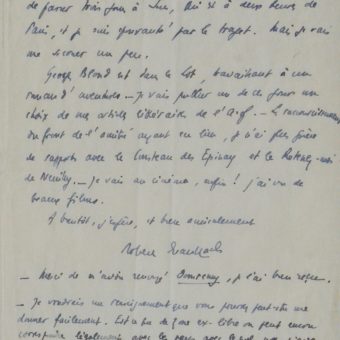 de passer trois jours à Sens, qui est à deux heures de
Paris, et je suis épouvanté par le trajet. Mais je vais
me secouer un peu.
George Blond est dans le Lot, travaillant à un
roman d'aventures. — Je vais publier un de ces jours un
choix de mes articles littéraires de l'A.f. — La reconstitution
du front de l'amitié ayant eu lieu, je n'ai plus guère
de rapports avec le des Epinay et le
de Neuilly. — Je vais au cinéma, enfin ! j'ai vu de
beaux films.
A bientôt, j'espère, et bien amicalement
Robert Brasillach
— Merci de m'avoir renvoyé , je l'ai bien reçu.
— Je voudrais un renseignement que vous pouvez peut-être me
donner facilement. Est-ce que de zone ex-libre on peut encore
correspondre légalement avec